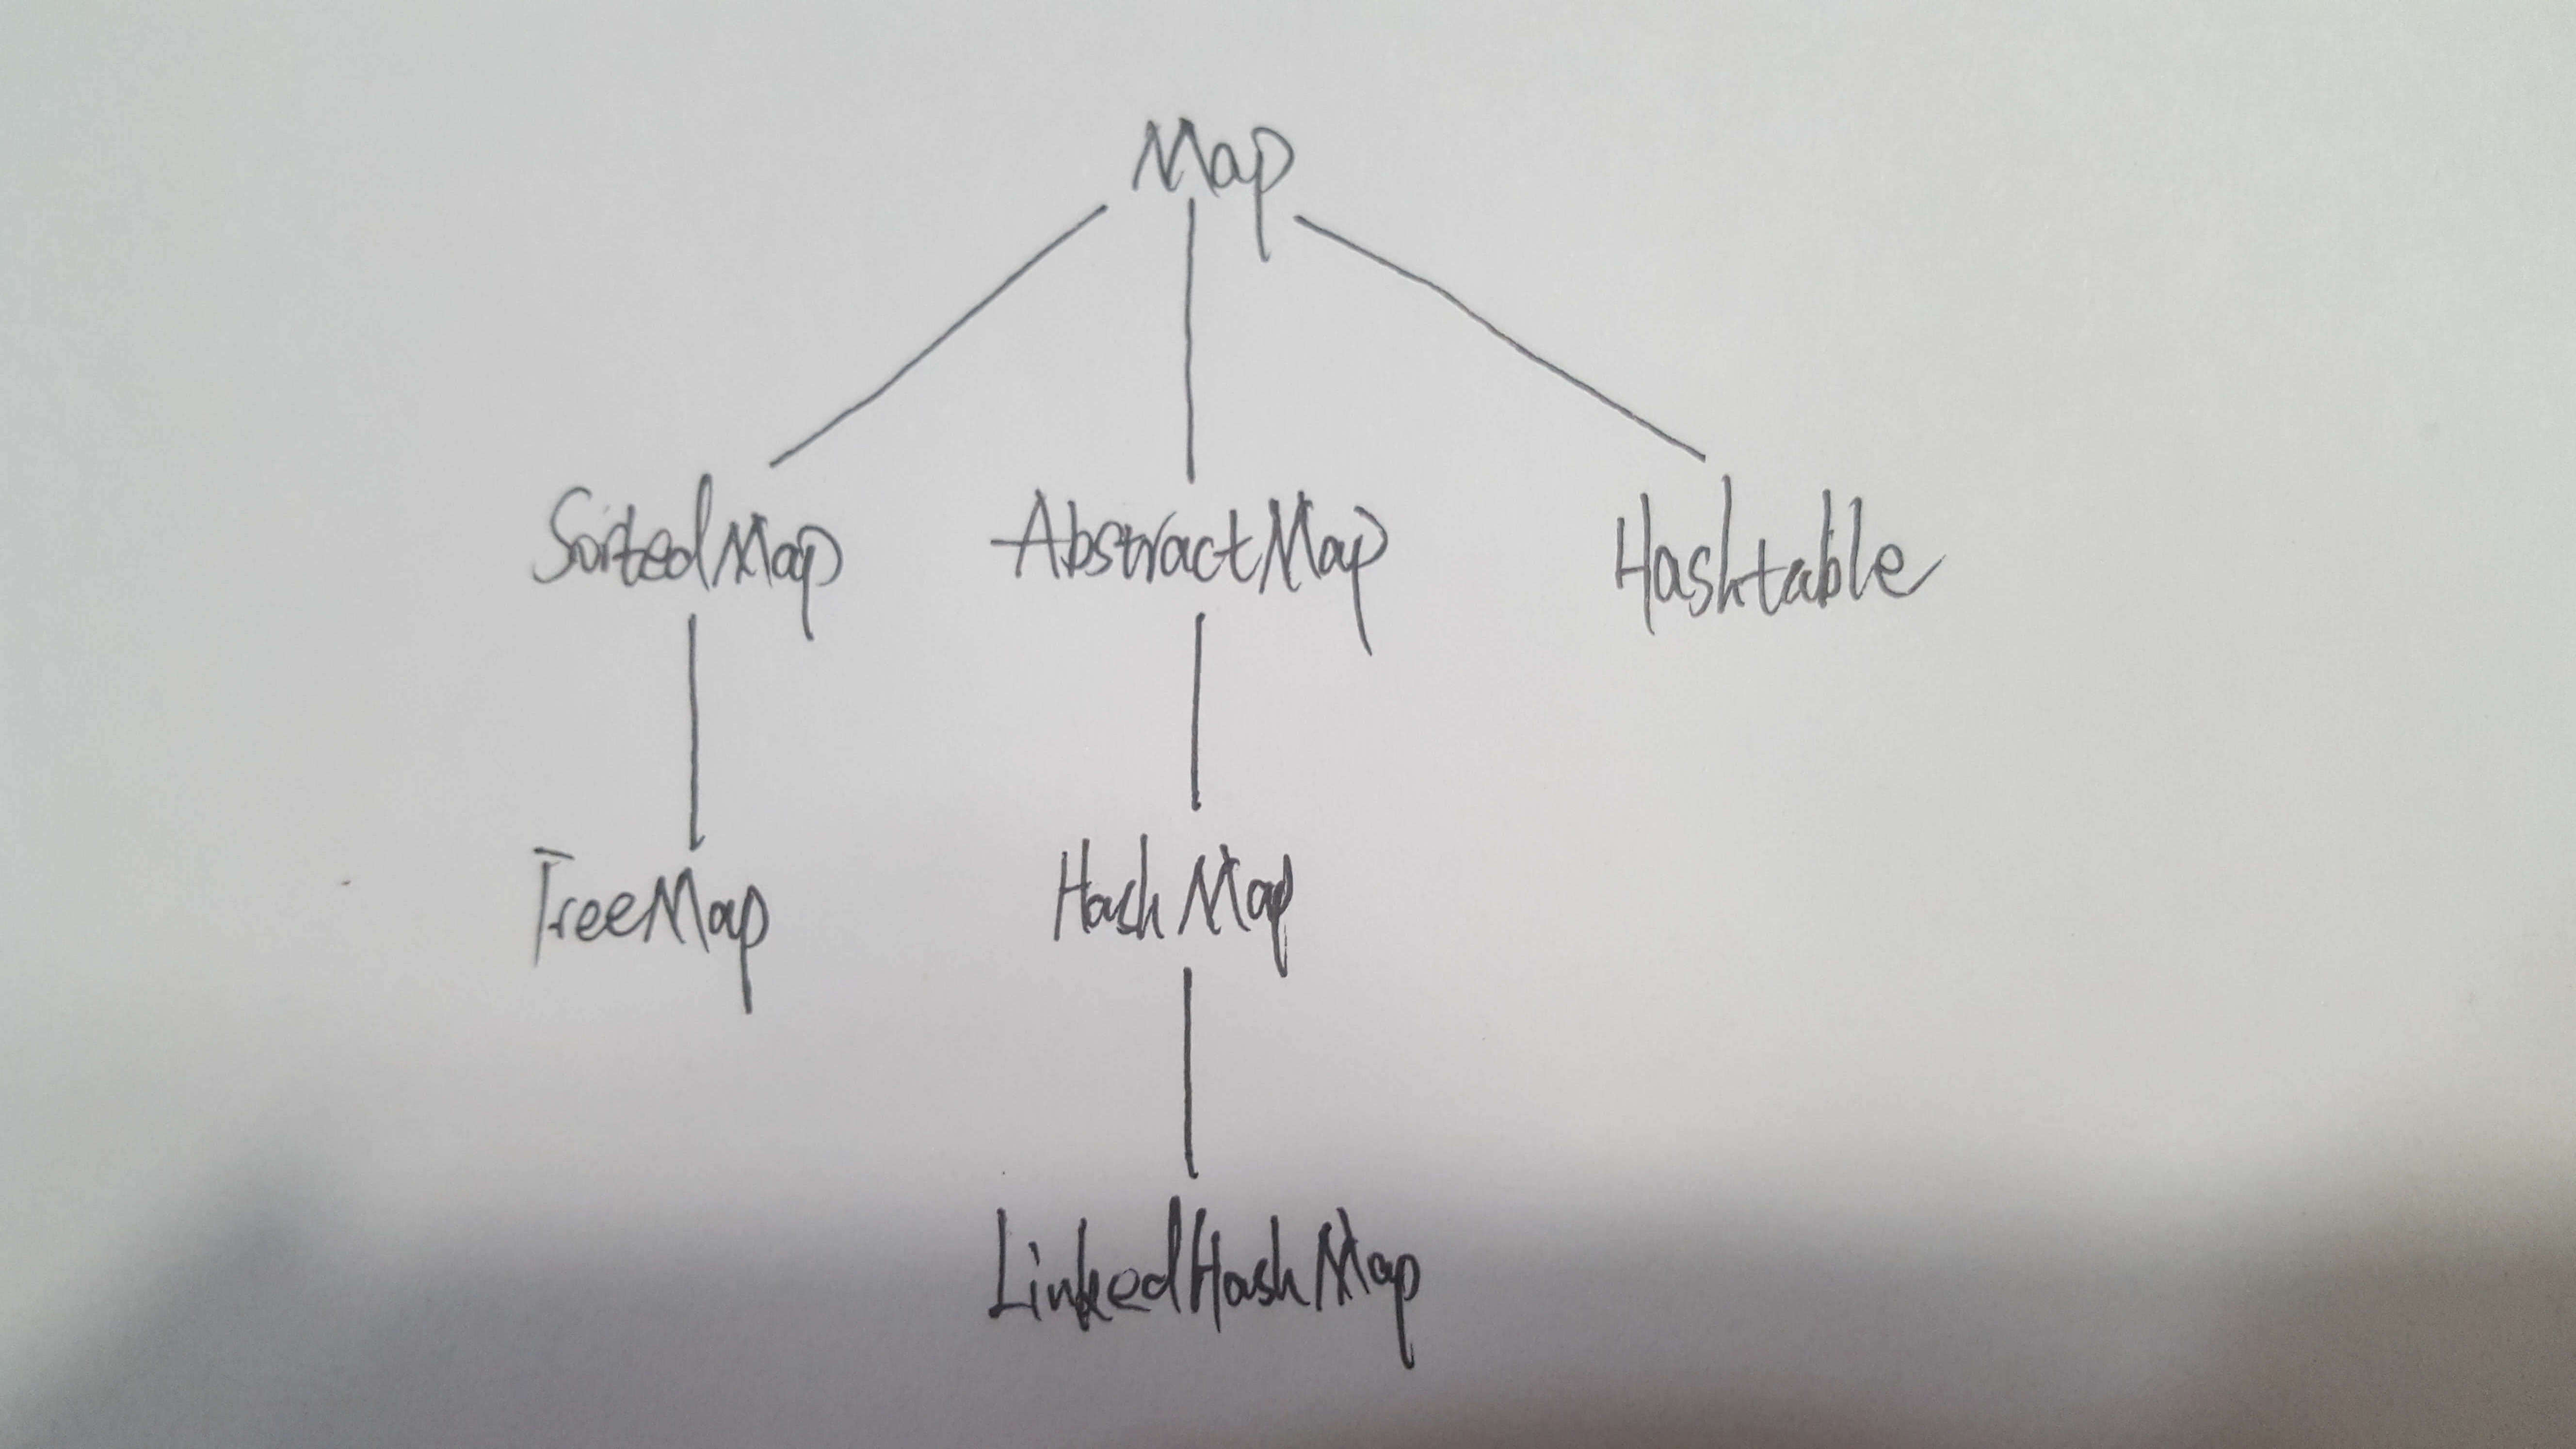 Map
SortedMap AbstractMap Hashtable
TreeMap HashMap
LinkedHashMap